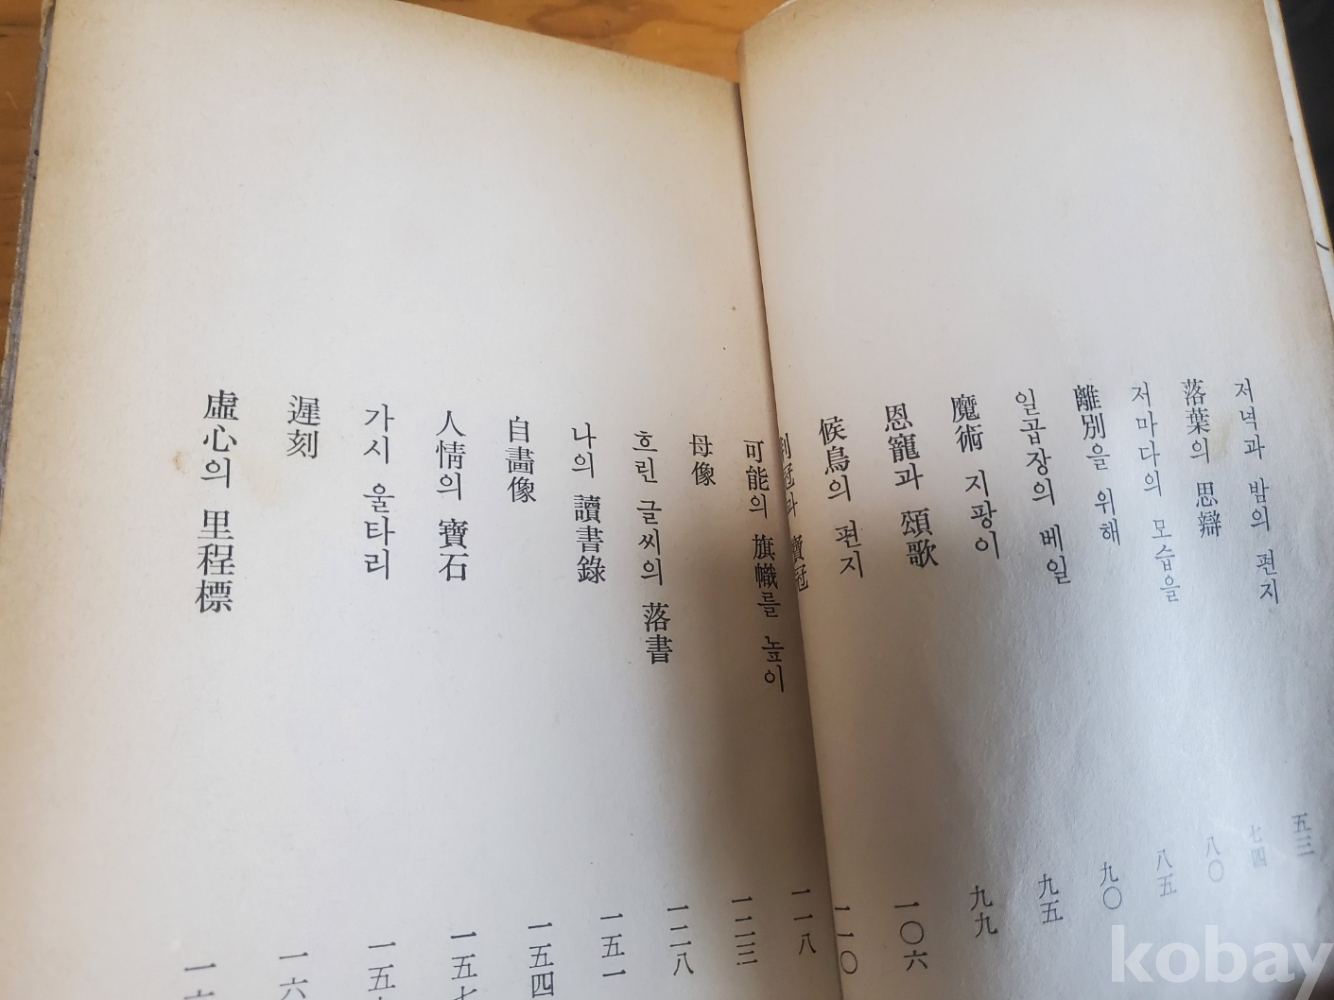 저녁과 밤의 편지 五三
落葉의 思辯 七四
저마다의 모습을 八〇
離別을 위해 八五
일곱장의 베일 九〇
魔術 지팡이 九五
恩寵과 頌歌 九九
候鳥의 편지 一〇六
寶冠 一一〇
可能의 旗幟를 높이 一一八
母像 一二三
흐린 글씨의 落書 一二八
나의 讀書錄 一五一
自畵像 一五四
人情의 寶石 一五七
가시 울타리 一五
遲刻 一六
虛心의 里程標 一
kobay